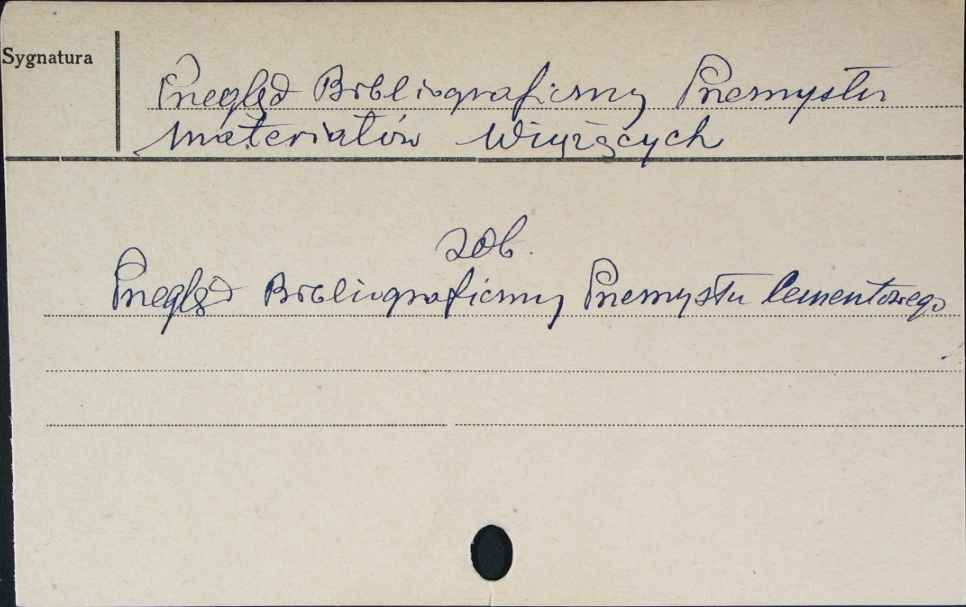 Sygnatura
Przegląd Bibliograficzny Przemysłu
Materiałów Wiążących
zob.
Przegląd Bibliograficzny Przemysłu Cementowego